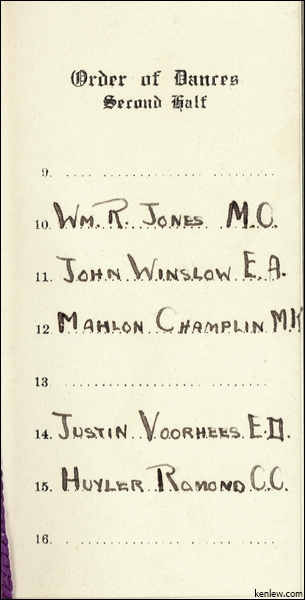 Order of Dances
Second Half
9. .... ........... .............
10. WM. R. JONES M.O.
11. JOHN WINSLOW E.A.
12 MAHLON CHAMPLIN M.K
13 .................. .............
14. JUSTIN VOORHEES E.D.
15. HUYLER ROMOND C.C.
16. ................ .............
kenlew.com